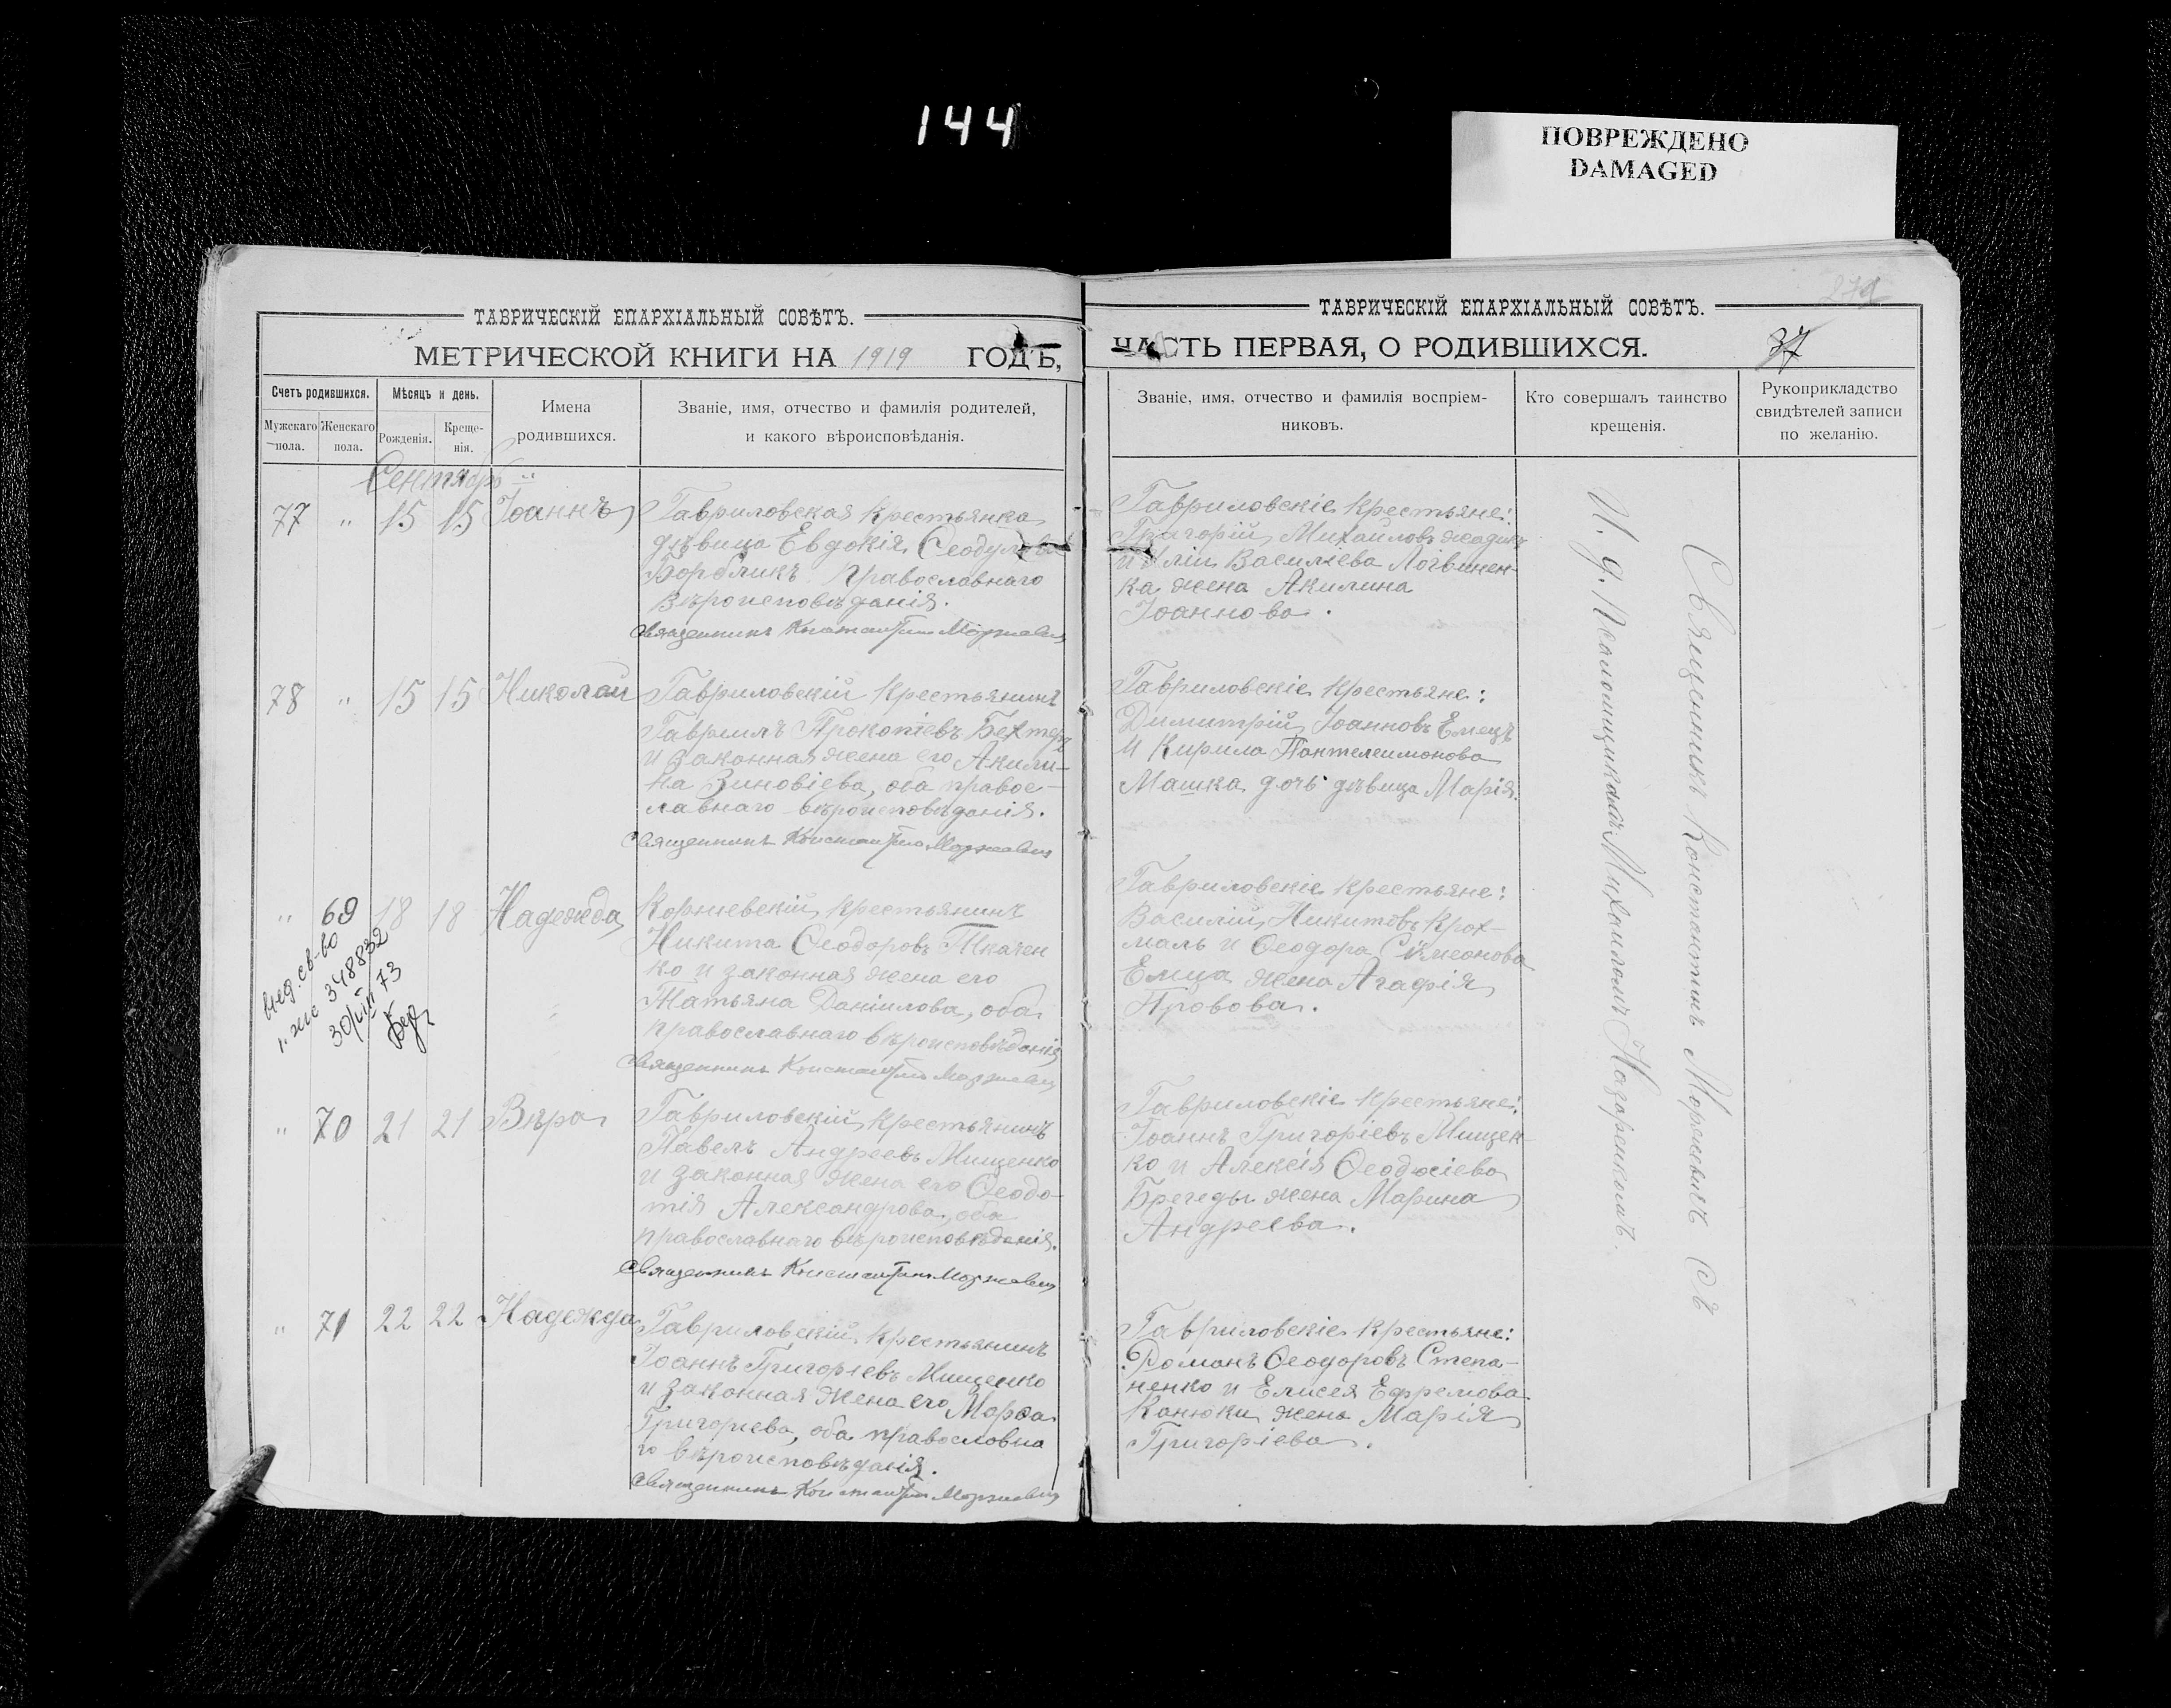 144
ПОВРЕЖДЕНО
DAMAGED
ТАВРИЧЕСКІЙ ЕПАРХІАЛЬНЫЙ СОВѢТЪ.
МЕТРИЧЕСКОЙ КНИГИ НА 1919 ГОДЪ,
Счетъ родившихся.
Мужскаго пола.
Женскаго пола.
Мѣсяцъ и день.
Рожденія.
Крещенія.
Имена
родившихся.
Званіе, имя, отчество и фамилія родителей,
и какого вѣроисповѣданія.
Сентябрь
77 " 15 15 Іоаннъ
Гавриловская крестьянка
дѣвица Евдокія
православнаго
вѣроисповѣданія.
Священникъ Константинъ Моржевичъ
78 " 15 15 Николай
Гавриловскій крестьянинъ
Гавріилъ Прокопіевъ Бехтеръ
и законная жена его Акили-
на Зиновіева, оба правос-
лавнаго вѣроисповѣданія.
Священникъ Константинъ Моржевичъ
" 69 18 18 Надежда
выд. св-во
348832
30/VIII 73
Корниевскій крестьянинъ
Никита Ѳеодоровъ Ткачен
ко и законная жена его
Татьяна Даніилова, оба
православнаго вѣроисповѣданія
Священникъ Константинъ Моржевичъ
" 70 21 21 Вѣра
Гавриловскій крестьянинъ
Павелъ Андреевъ Мищенко
и законная жена его Ѳеодо-
тія Александрова, оба
православнаго вѣроисповѣданія.
Священникъ Константинъ Моржевичъ
" 71 22 22 Надежда
Гавриловскій крестьянинъ
Іоаннъ Григоріевъ Мищенко
и законная жена его Марѳа
Григориева, оба православна
го вѣроисповѣданія.
Священникъ Константинъ Моржевичъ
ТАВРИЧЕСКІЙ ЕПАРХІАЛЬНЫЙ СОВѢТЪ.
ЧАСТЬ ПЕРВАЯ, О РОДИВШИХСЯ.
37
Званіе, имя, отчество и фамилія воспріем-
никовъ.
Кто совершалъ таинство
крещенія.
Рукоприкладство
свидѣтелей записи
по желанію.
Гавриловскіе крестьяне:
Григорій Михайловъ
и Иліи Василіева Логвинен-
ка жена Акилина
Іоаннова.
Гавриловскіе крестьяне:
Димитрій Іоанновъ Емецъ
и Кирила Пантелеимонова
Машка дочь дѣвица Марія.
Гавриловскіе крестьяне:
Василій Никитовъ Крох-
маль и Ѳеодора Симеонова
Емца жена Агафія
Провова.
Гавриловскіе крестьяне:
Іоаннъ Григоріевъ Мищен-
ко и Алексія Ѳеодосіева
Брегеды жена Марина
Андреева.
Гавриловскіе крестьяне:
Романъ Ѳеодоровъ Степа-
ненко и Елисея Ефремова
Канюки жена Марія
Григоріева.
Священникъ Константинъ Моржевичъ съ
И. д. Псаломщикомъ Михаиломъ Назаренкомъ.